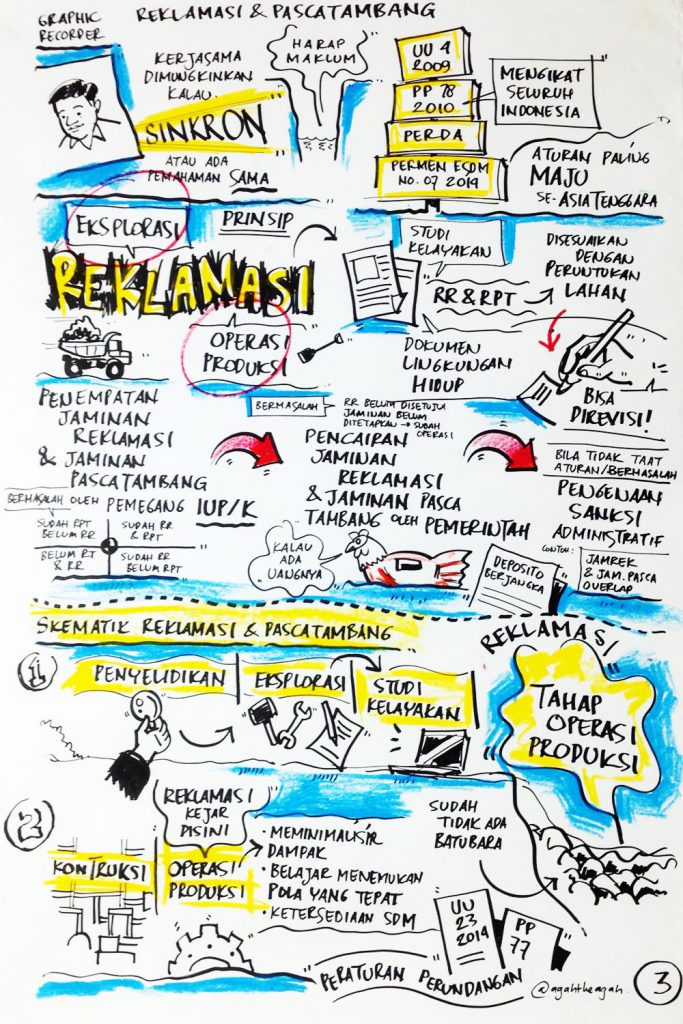 GRAPHIC
RECORDER
REKLAMASI & PASCATAMBANG
KERJASAMA
DIMUNGKINKAN
KALAU
SINKRON
ATAU ADA
PEMAHAMAN SAMA
HARAP
MAKLUM
UU 4
2009
PP 78
2010
PERDA
PERMEN ESDM
NO. 07 2014
MENGIKAT
SELURUH
INDONESIA
ATURAN PALING
MAJU
SE-ASIA TENGGARA
EKSPLORASI
PRINSIP
REKLAMASI
OPERASI
PRODUKSI
STUDI
KELAYAKAN
RR & RPT
DOKUMEN
LINGKUNGAN
HIDUP
DISESUAIKAN
DENGAN
PERUNTUKAN
LAHAN
BISA
DIREVISI!
PENEMPATAN
JAMINAN
REKLAMASI
& JAMINAN
PASCATAMBANG
BERMASALAH OLEH PEMEGANG IUP/K
SUDAH RPT
BELUM RR
SUDAH RR
& RPT
BELUM RT
& RR
SUDAH RR
BELUM RPT
BERMASALAH
RR BELUM DISETUJUI
JAMINAN BELUM
DITETAPKAN → SUDAH
OPERASI
PENCAIRAN
JAMINAN
REKLAMASI
& JAMINAN PASCA
TAMBANG OLEH PEMERINTAH
KALAU
ADA
UANGNYA
DEPOSITO
BERJANGKA
BILA TIDAK TAAT
ATURAN/BERMASALAH
PENGENAAN
SANKSI
ADMINISTRATIF
CONTOH:
JAMREK
& JAM.PASCA
OVERLAP
SKEMATIK REKLAMASI & PASCATAMBANG
1
PENYELIDIKAN
EKSPLORASI
STUDI
KELAYAKAN
REKLAMASI
TAHAP
OPERASI
PRODUKSI
2
KONTRUKSI
REKLAMASI
KEJAR
DISINI
OPERASI
PRODUKSI
• MEMINIMALISIR
DAMPAK
• BELAJAR MENEMUKAN
POLA YANG TEPAT
• KETERSEDIAAN SDM
SUDAH
TIDAK ADA
BATUBARA
UU
23
2014
PP
77
PERATURAN PERUNDANGAN
@agahtheagah
3